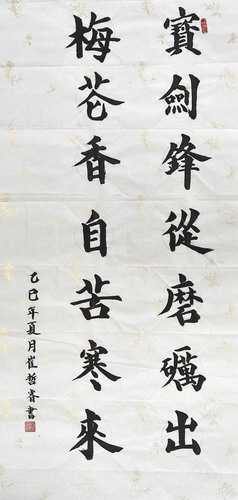 寶劍鋒從磨礪出
梅花香自苦寒來
乙巳年夏月崔哲睿書